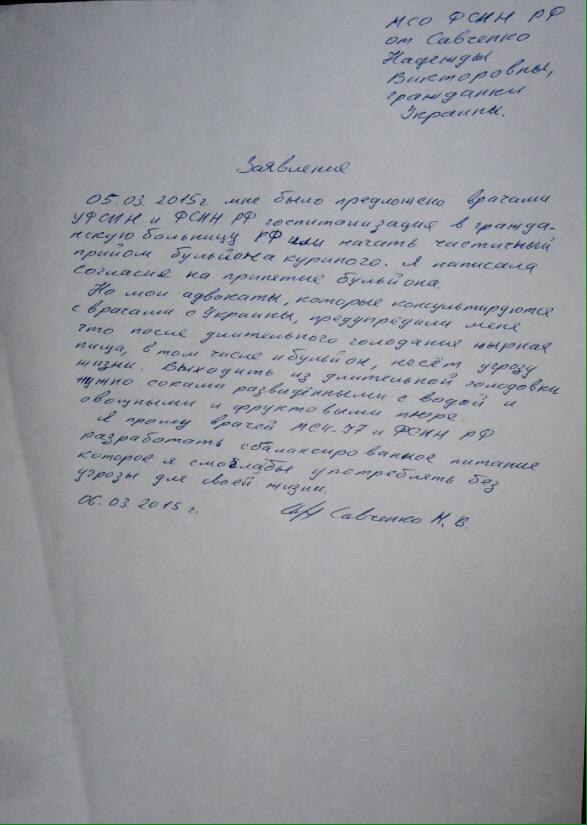 МСО ФСИН РФ
от Савченко
Надежды
Викторовны,
гражданки
Украины.
Заявление
05.03.2015г. мне было предложено врачами
УФСИН и ФСИН РФ госпитализация в гражда-
нскую больницу РФ или начать частичный
прийом бульйона куриного. Я написала
согласие на принятие бульйона.
Но мои адвокаты, которые консультируются
с врачами с Украины, предупредили меня
что после длительного голодания жырная
пища, в том числе и бульйон, несёт угрозу
жизни. Выходить из длительной голодовки
нужно соками разведёнными с водой и
овощными и фруктовими пюре.
Я прошу врачей МСЧ-77 и ФСИН РФ
разработать сбалансированное питание
которое я смоглабы употреблять без
угрозы для своей жизни.
06.03.2015г. Савченко Н.В.